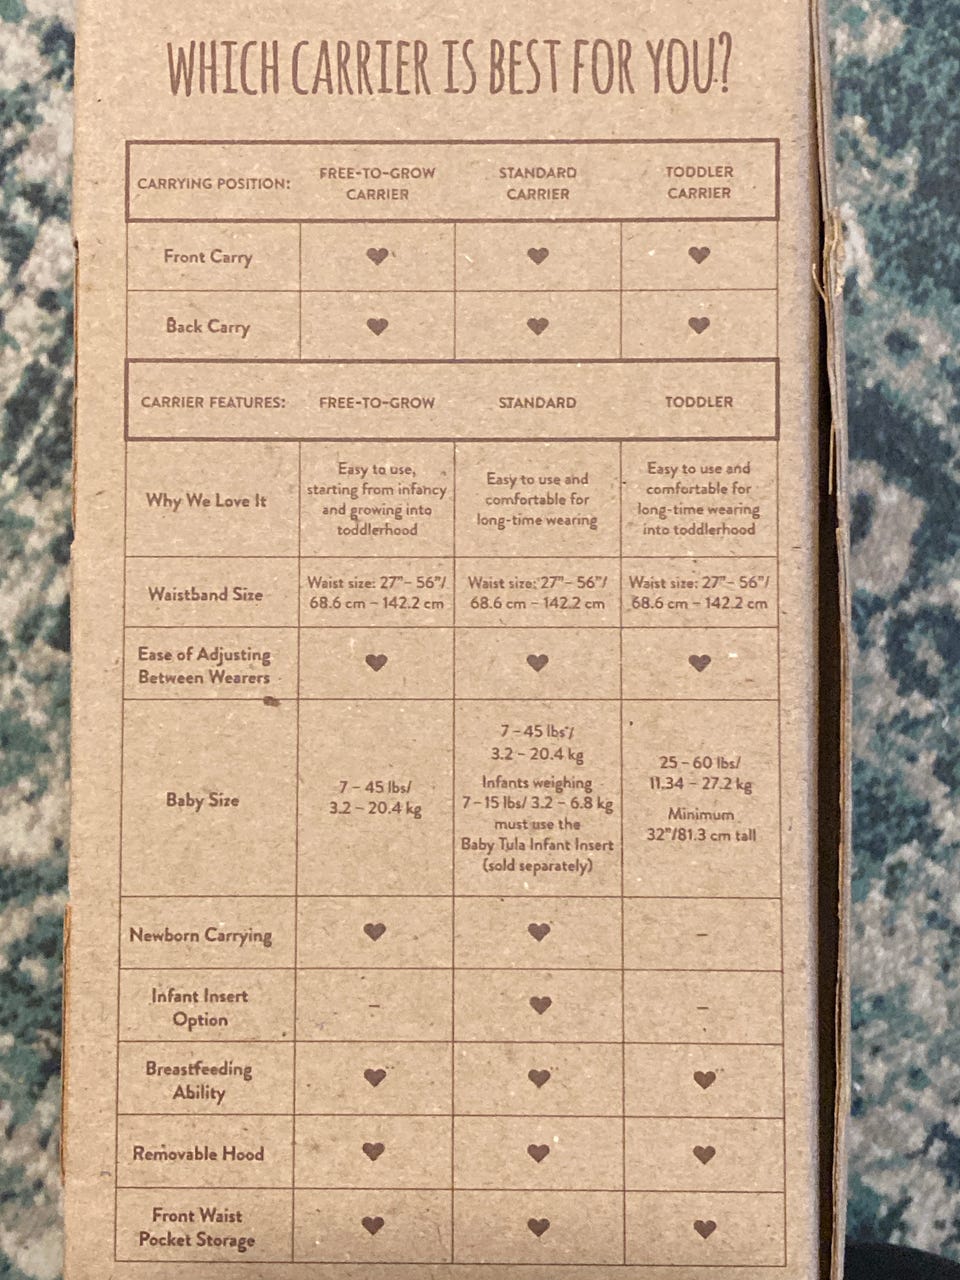 WHICH CARRIER IS BEST FOR YOU?
CARRYING POSITION: FREE-TO-GROW CARRIER STANDARD CARRIER TODDLER CARRIER
Front Carry ♥ ♥ ♥
Back Carry ♥ ♥ ♥
CARRIER FEATURES: FREE-TO-GROW STANDARD TODDLER
Why We Love It
Easy to use,
starting from infancy
and growing into
toddlerhood
Easy to use and
comfortable for
long-time wearing
Easy to use and
comfortable for
long-time wearing
into toddlerhood
Waistband Size
Waist size: 27"– 56"/
68.6 cm – 142.2 cm
Waist size: 27"– 56"/
68.6 cm – 142.2 cm
Waist size: 27"– 56"/
68.6 cm – 142.2 cm
Ease of Adjusting
Between Wearers
♥ ♥ ♥
Baby Size
7 – 45 lbs/
3.2 – 20.4 kg
7 – 45 lbs*/
3.2 – 20.4 kg
Infants weighing
7 – 15 lbs/ 3.2 – 6.8 kg
must use the
Baby Tula Infant Insert
(sold separately)
25 – 60 lbs/
11.34 – 27.2 kg
Minimum
32"/81.3 cm tall
Newborn Carrying ♥ ♥* –
Infant Insert
Option
– ♥ –
Breastfeeding
Ability
♥** ♥** ♥**
Removable Hood ♥ ♥ ♥
Front Waist
Pocket Storage
♥ ♥ ♥